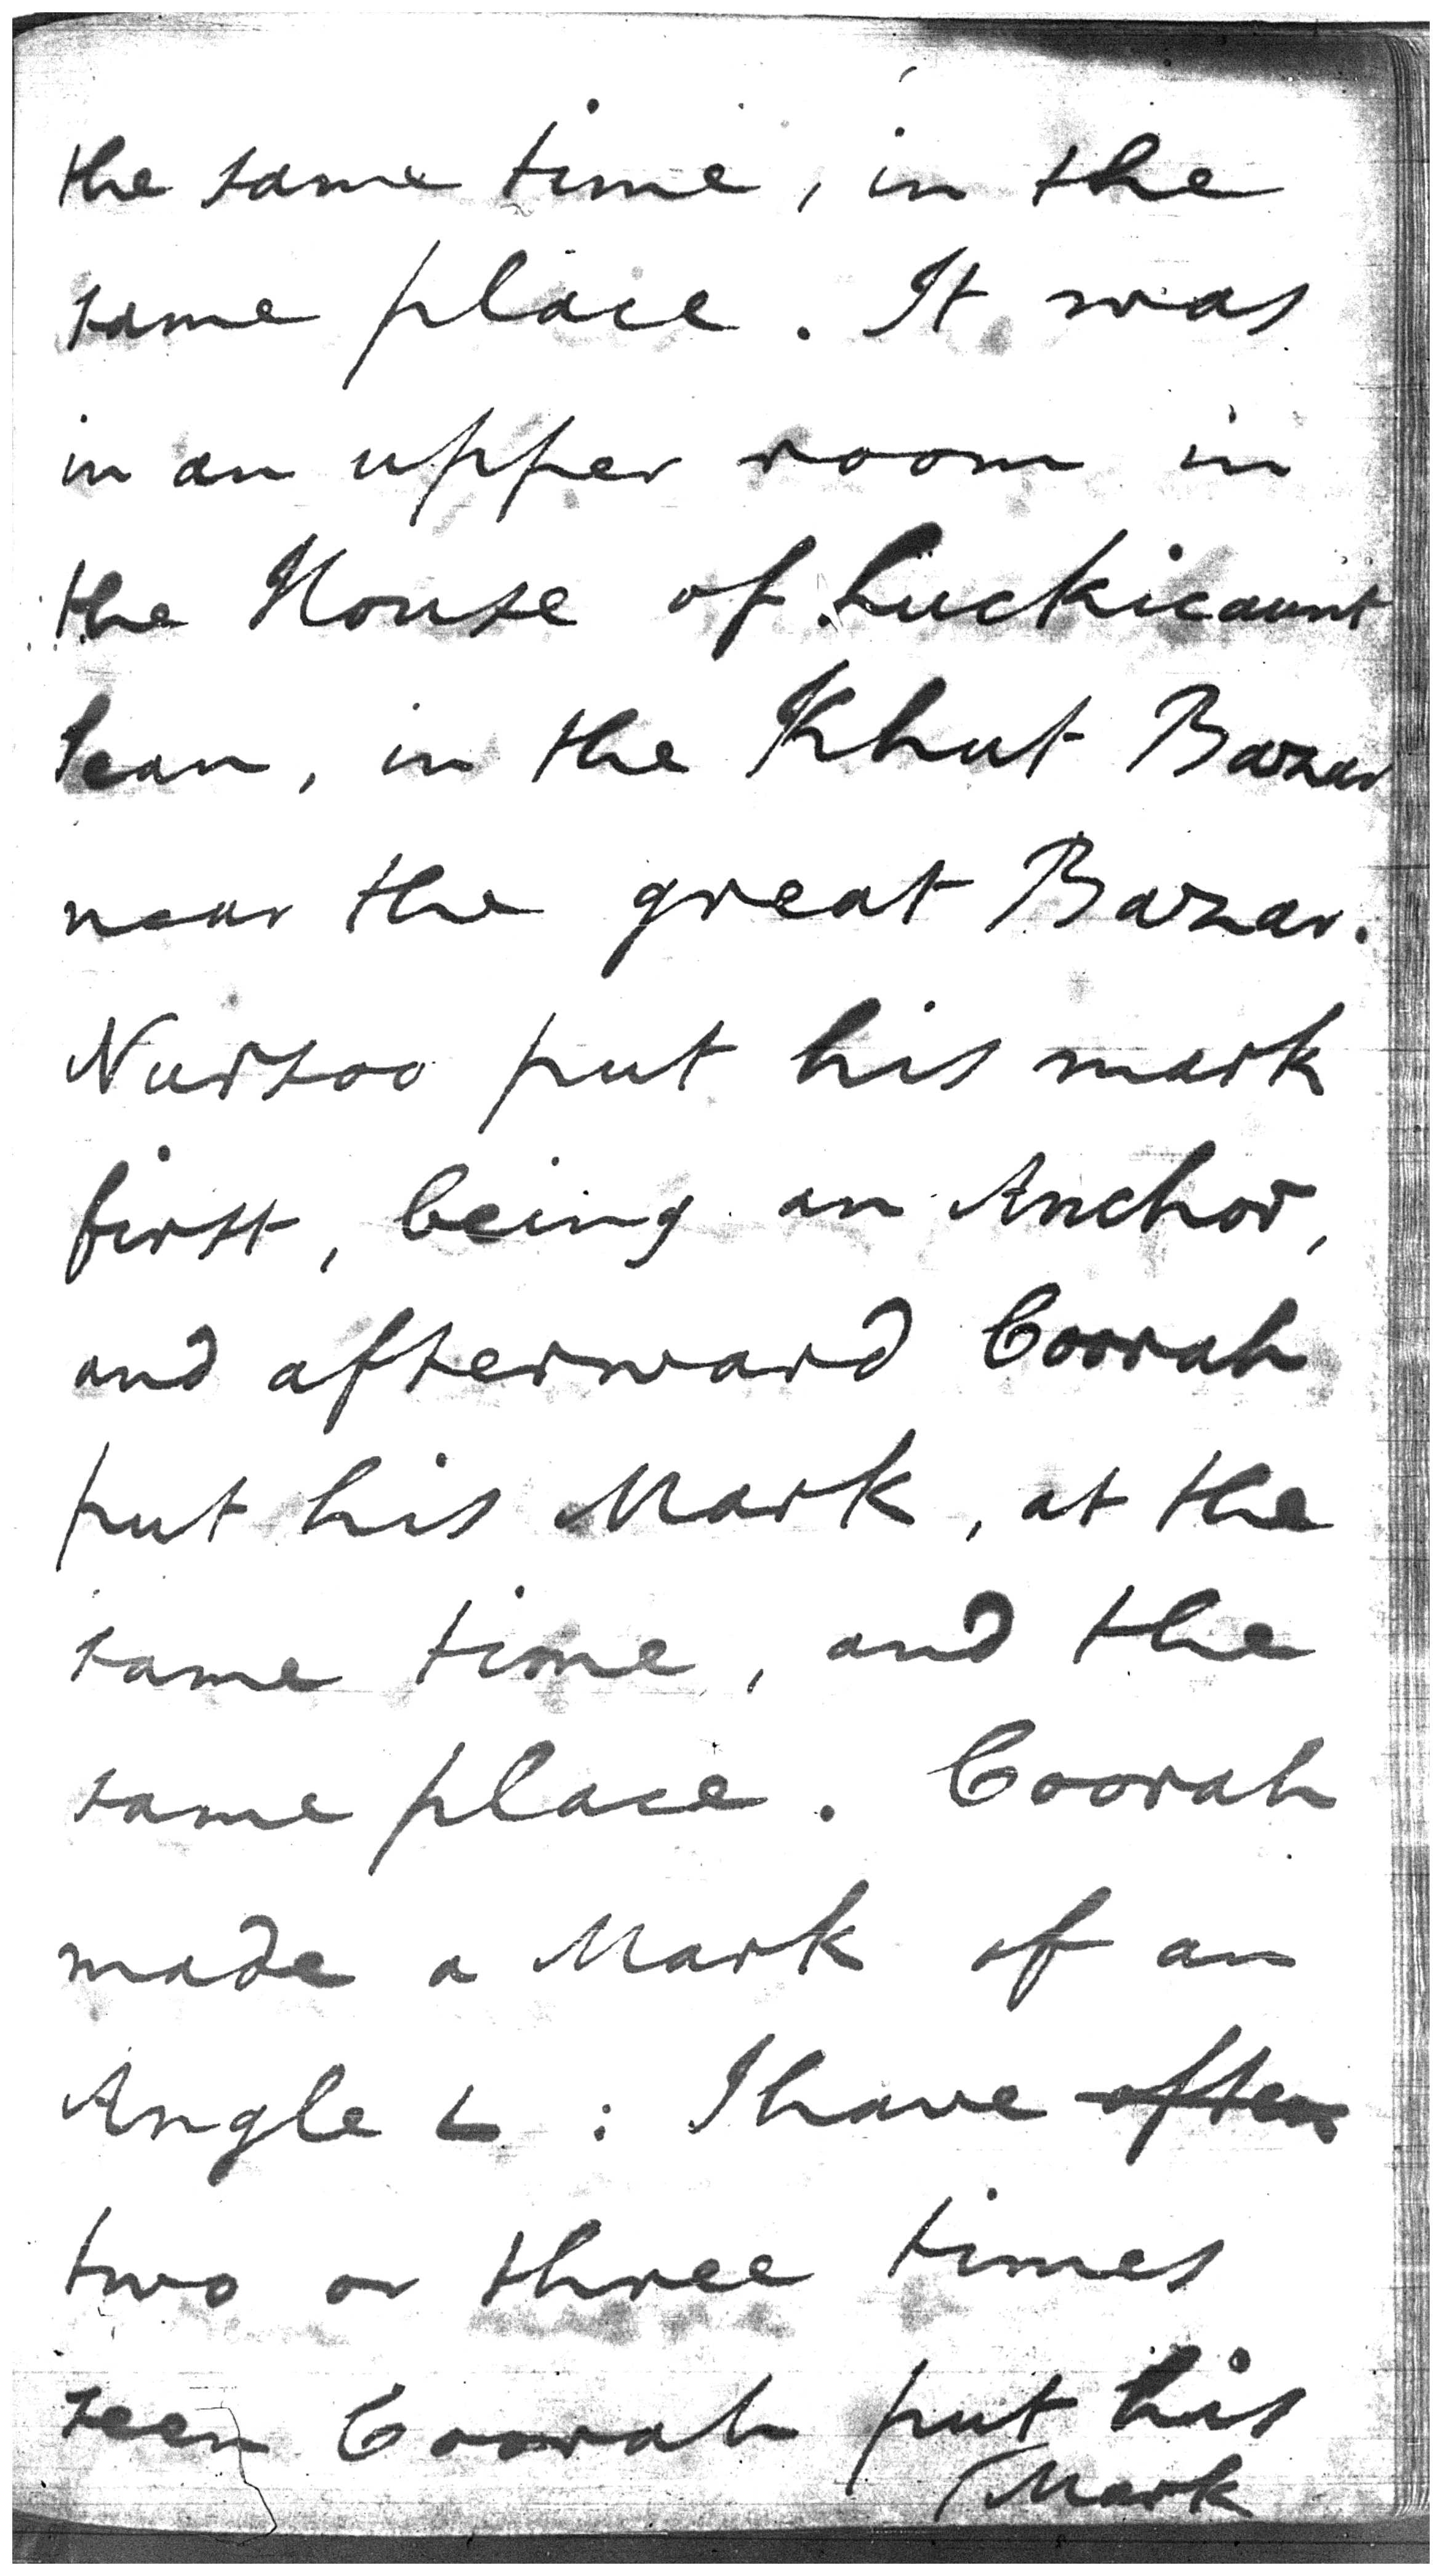 the same time, in the
same place. It was
in an upper room in
the House of Luckicaunt
Sean, in the Khut Bazar
near the great Bazar.
Nursoo put his mark
first, being an Anchor,
and afterward Coorah
put his Mark, at the
same time, and the
same place. Coorah
made a Mark of an
Angle L : I have often
two or three times
seen Coorah put his
Mark